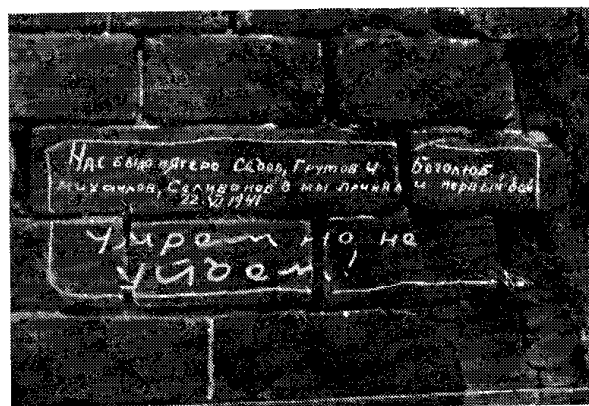 Нас было пятеро Седов, Грутов И Боголюб,
Михайлов, Селиванов В мы приняли первый бой
22 VI 1941
умрем но не
уйдем!